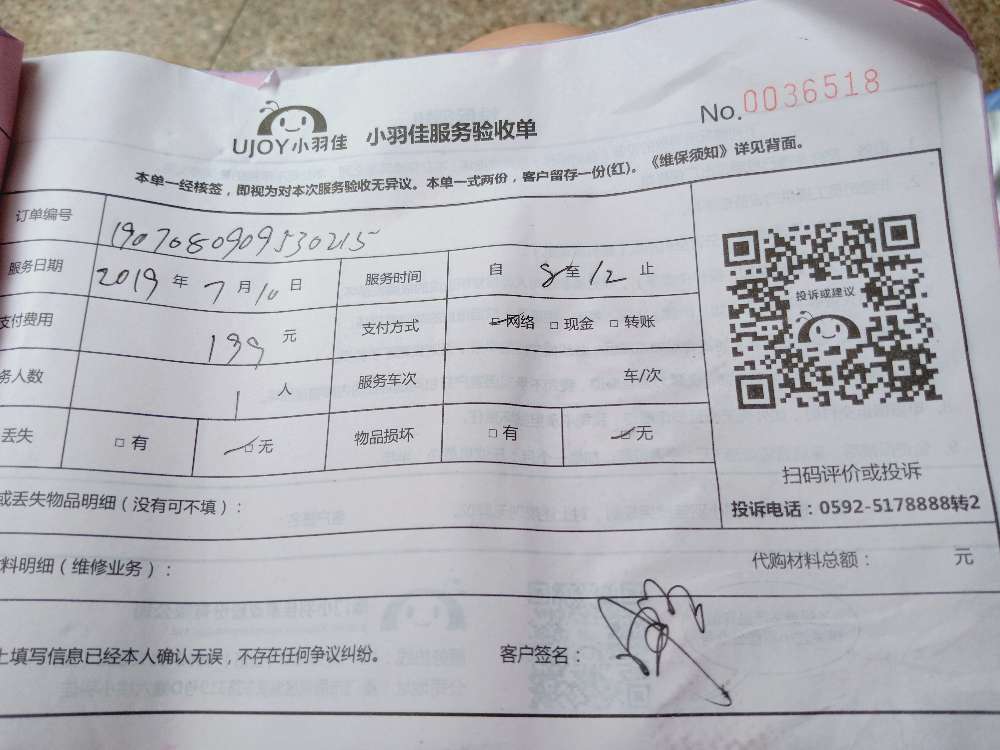 No.0036518
UJOY小羽佳 小羽佳服务验收单
本单一经核签，即视为对本次服务验收无异议。本单一式两份，客户留存一份(红)。《维保须知》详见背面。
订单编号 1907080909530215
服务日期 2019 年 7 月 10 日 服务时间 自 8 至 12 止
支付费用 199 元 支付方式 网络 □ 现金 □ 转账
务人数 1 人 服务车次 车/次
丢失 □ 有 □ 无 物品损坏 □ 有 □ 无
投诉或建议
扫码评价或投诉
投诉电话：0592-5178888转2
或丢失物品明细（没有可不填）：
料明细（维修业务）： 代购材料总额： 元
上填写信息已经本人确认无误，不存在任何争议纠纷。 客户签名：